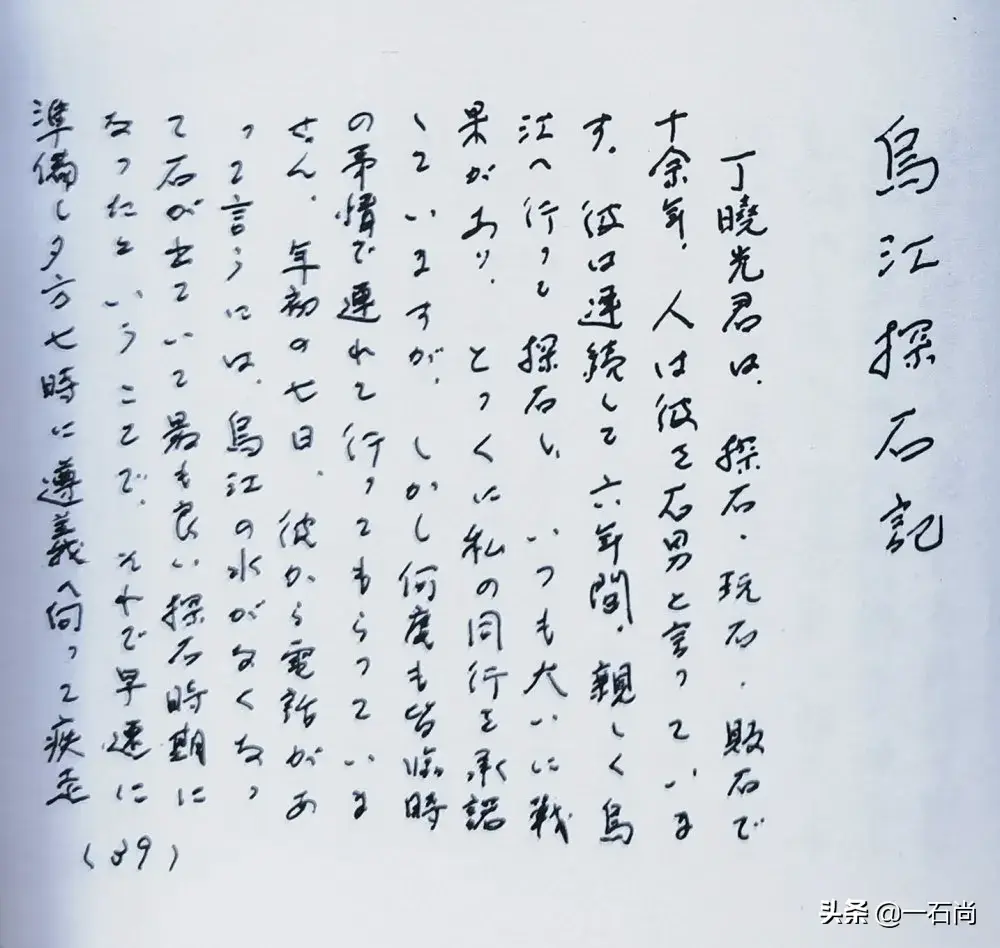 烏江探石記
丁曉光君は、探石・玩石・販石で
十余年、人は彼を石男と言っていま
す。彼は連続して六年間、親しく烏
江へ行って探石し、いつも大いに戦
果があり、とっくに私の同行を承諾
していますが、しかし何度も皆臨時
の事情で連れて行ってもらっていま
せん。年初の七日、彼から電話があ
って言うには、烏江の水がなくなっ
て石が出ていて最も良い探石時期に
なったということで、それで早速に
準備し夕方七時に遵義へ向って疾走
(89)
头条 @一石尚